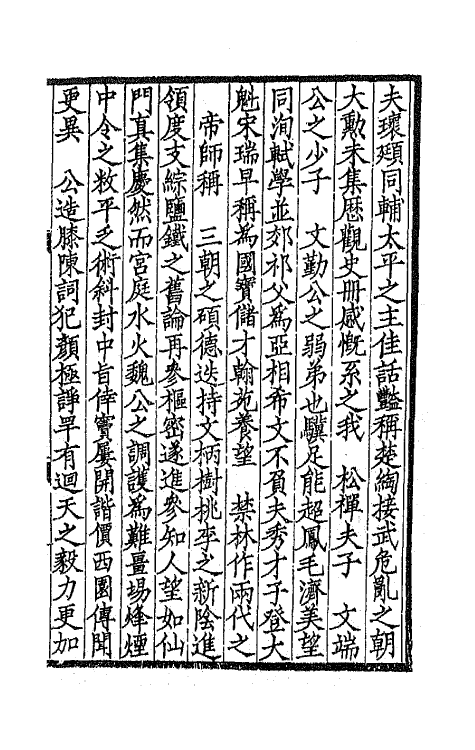 夫瓌頲同輔太平之主佳話豔稱楚綯接武危亂之朝
大勳未集歴觀史册感慨系之我　松禪夫子　文端
公之少子　文勤公之弱弟也驥足能超鳳毛濟美望
同洵軾學並郊祁父爲亞相希文不負夫秀才子登大
魁宋瑞早稱爲國寶儲才翰苑養望　禁林作兩代之
　帝師稱　三朝之碩德迭持文柄樹桃李之新陰進
領度支綜鹽鐵之舊論再參樞密遂進參知人望如仙
門真集慶然而宮庭水火魏公之調護為難畺場烽煙
中令之敉平乏術斜封中旨倖竇屢開諧價西園傳聞
更異　公造膝陳詞犯顏極諍早有迴天之毅力更加